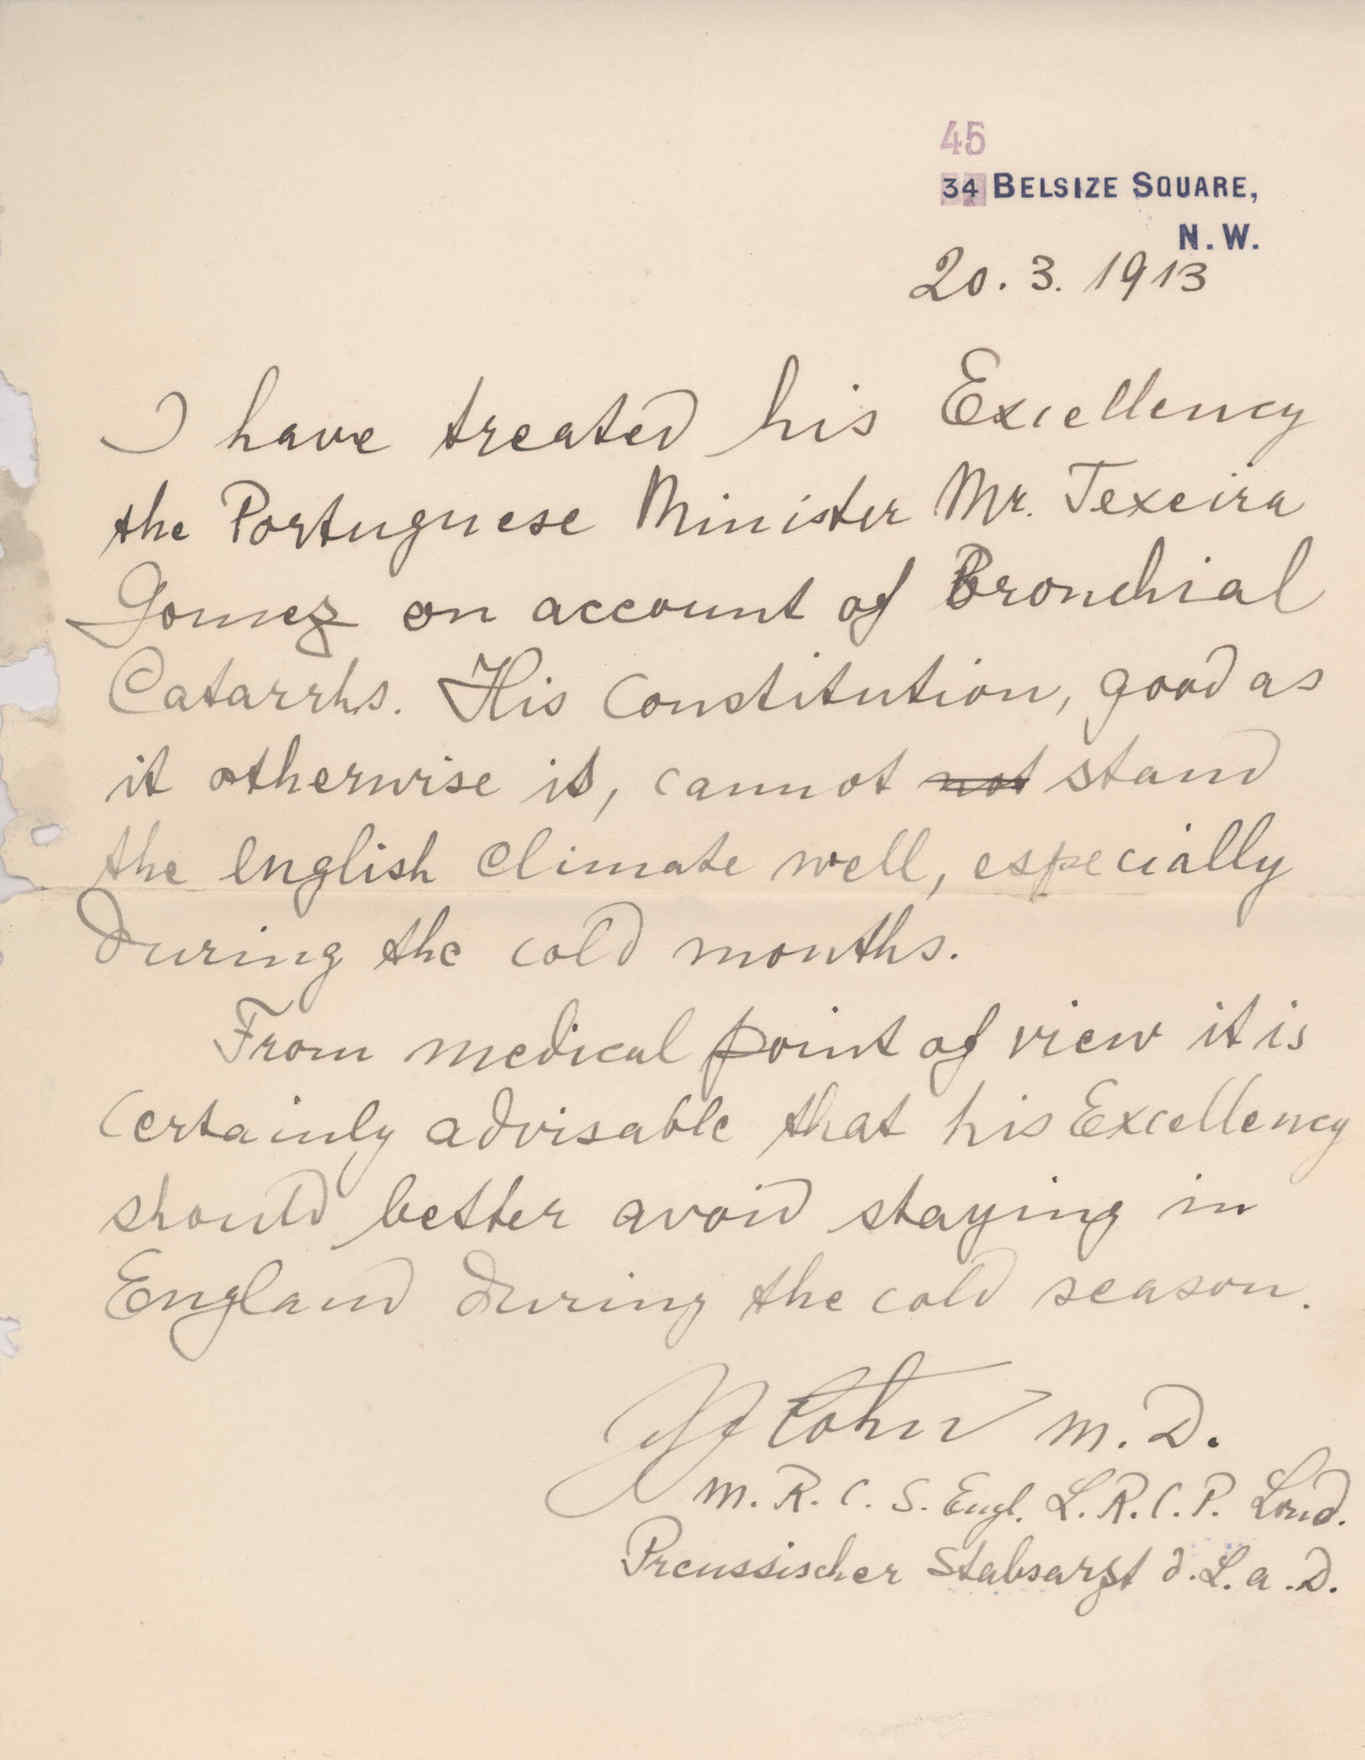 45
34 BELSIZE SQUARE,
N.W.
20. 3. 1913
I have treated his Excellency
the Portuguese Minister Mr. Texeira
Gomez on account of Bronchial
Catarrhs. His Constitution, good as
it otherwise is, cannot not stand
the English Climate well, especially
during the cold months.
From medical point of view it is
Certainly advisable that his Excellency
should better avoid staying in
England during the cold season.
Cohn M.D.
M.R.C.S. Engl. L.R.C.P. Lond.
Preussischer Stabsarzt d. L. a. D.